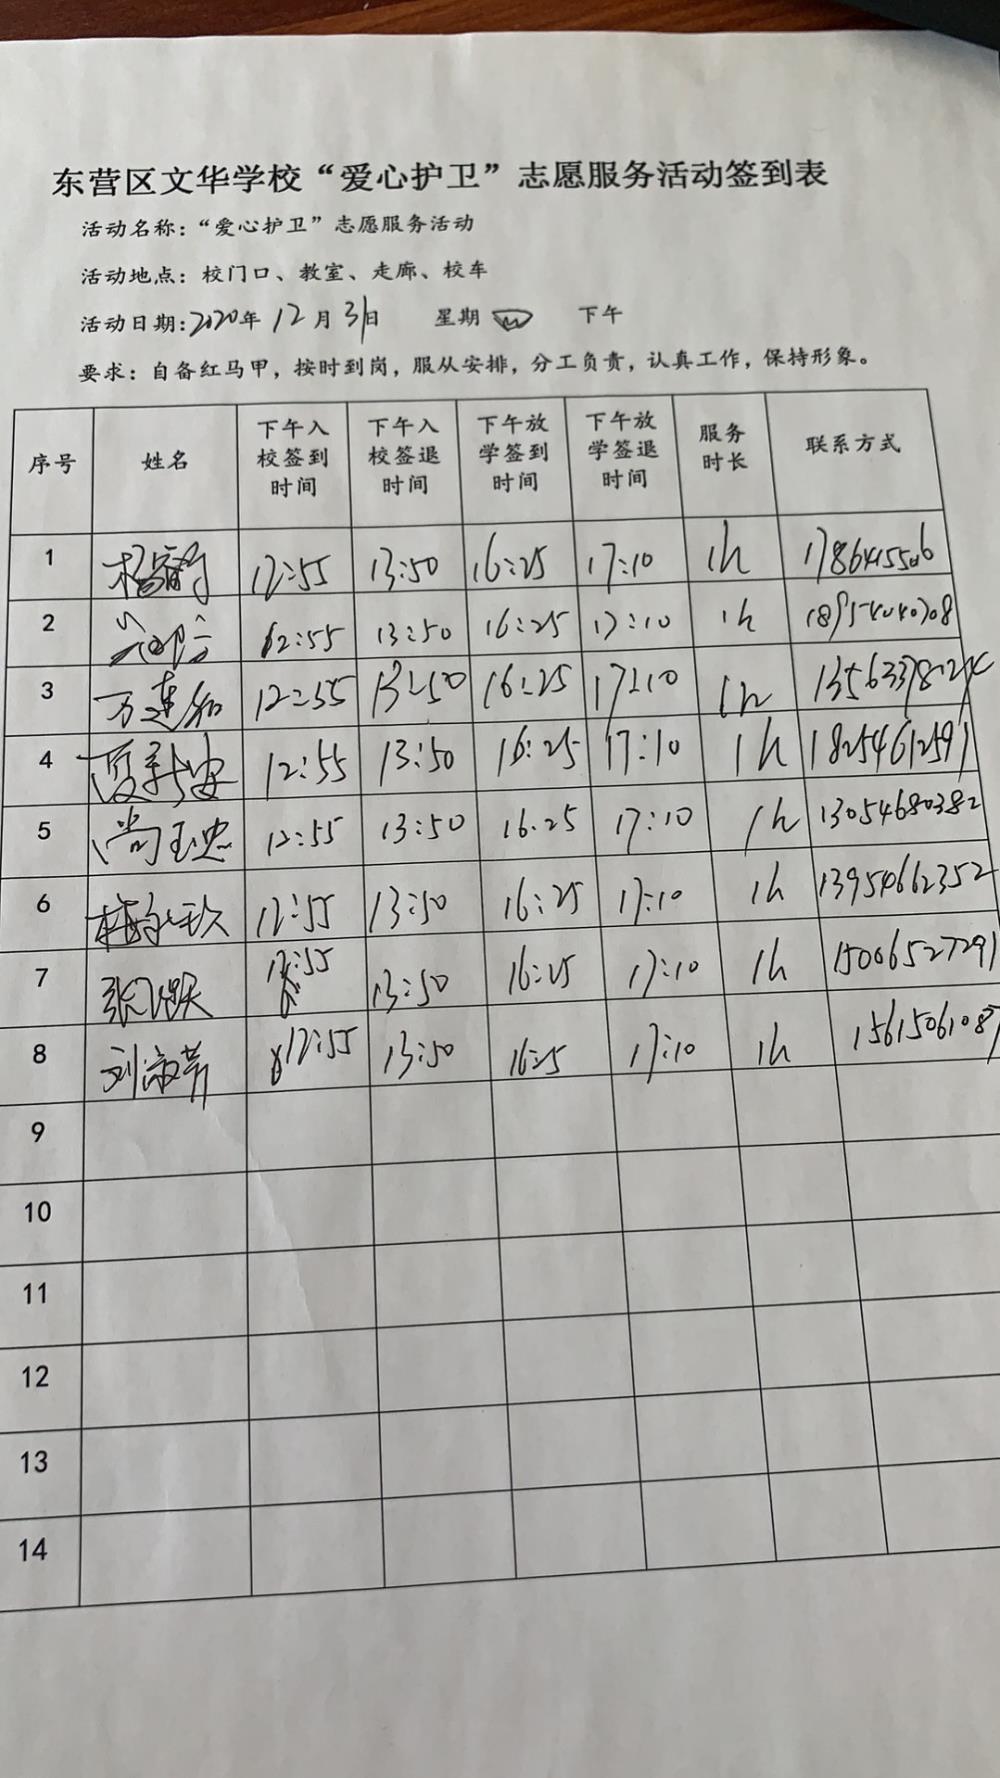 东营区文华学校“爱心护卫”志愿服务活动签到表
活动名称：“爱心护卫”志愿服务活动
活动地点：校门口、教室、走廊、校车
活动日期：2020年 12月 31日 星期四 下午
要求：自备红马甲，按时到岗，服从安排，分工负责，认真工作，保持形象。
序号 姓名 下午入校签到时间 下午入校签退时间 下午放学签到时间 下午放学签退时间 服务时长 联系方式
1 12:55 13:50 16:25 17:10 1h
2 12:55 13:50 16:25 17:10 1h 18954040708
3 万连和 12:55 13:50 16:25 17:10 1h
4 夏新安 12:55 13:50 16:25 17:10 1h 18254612591
5 尚玉忠 12:55 13:50 16:25 17:10 1h 13054680382
6 12:55 13:50 16:25 17:10 1h 13954662352
7 12:55 13:50 16:25 17:10 1h 15006527291
8 刘淑芳 12:55 13:50 16:25 17:10 1h 15615061087
9
10
11
12
13
14